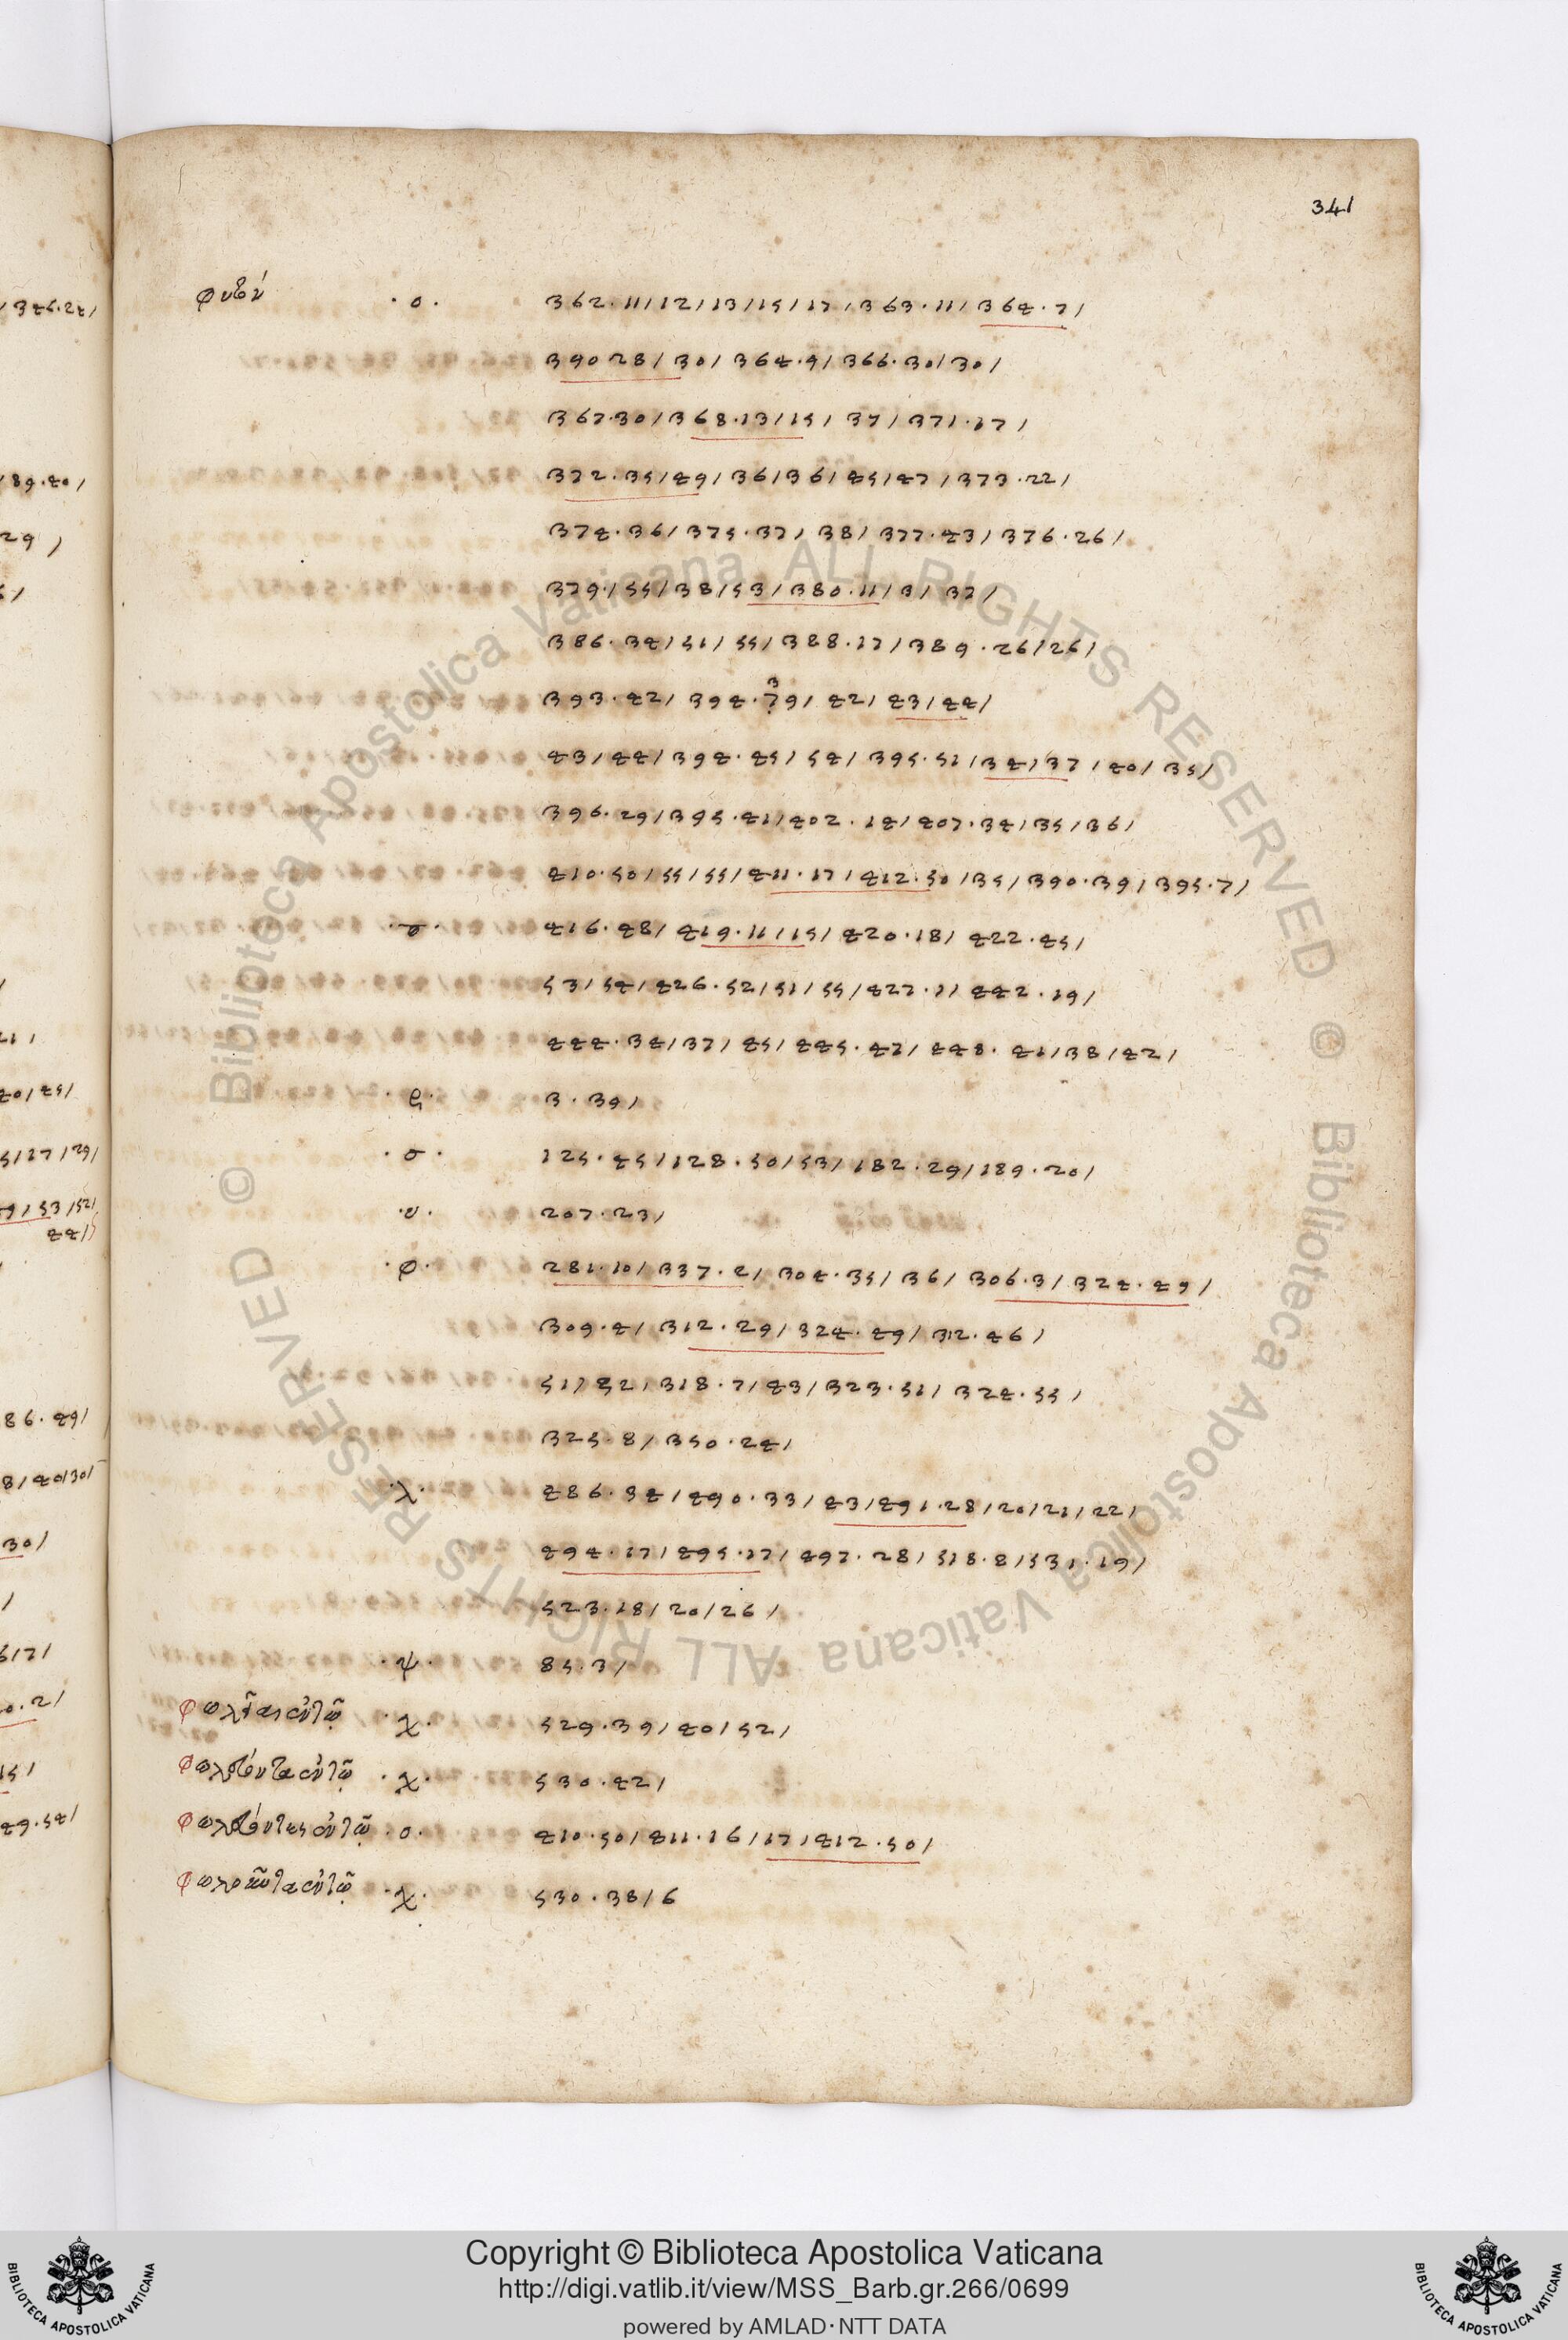 341
φυτόν · ο · 362 · 11 / 12 / 13 / 15 / 17 / 363 · 11 / 364 · 7 /
390 28 / 30 / 364 · 9 / 366 · 30 / 30 /
367 · 30 / 368 · 13 / 15 / 37 / 371 · 17 /
372 · 35 / 49 / 36 / 36 / 45 / 47 / 373 · 22 /
374 · 36 / 375 · 37 / 38 / 377 · 43 / 376 · 26 /
379 · / 55 / 38 / 53 / 380 · 11 / 3 / 37 /
386 · 34 / 51 / 55 / 388 · 17 / 389 · 26 / 26 /
393 · 42 / 394 · 39 / 42 / 43 / 44 /
43 / 44 / 394 · 45 / 54 / 395 · 51 / 34 / 37 / 40 / 35 /
396 · 29 / 395 · 41 / 402 · 14 / 407 · 34 / 35 / 36 /
410 · 50 / 55 / 55 / 411 · 17 / 412 · 50 / 35 / 390 · 39 / 395 · 7 /
416 · 48 / 419 · 11 / 15 / 420 · 18 / 422 · 45 /
53 / 54 / 426 · 52 / 51 / 55 / 427 · 1 / 442 · 19 /
444 · 34 / 37 / 45 / 445 · 47 / 448 · 41 / 38 / 42 /
3 · 39 /
· σ · 125 · 45 / 128 · 50 / 53 / 182 · 29 / 189 · 20 /
· υ · 207 · 23 /
· φ · 281 · 10 / 337 · 2 / 304 · 35 / 36 / 306 · 3 / 324 · 49 /
309 · 4 / 312 · 29 / 324 · 49 / 312 · 46 /
51 / 52 / 318 · 7 / 43 / 323 · 51 / 324 · 55 /
325 · 8 / 350 · 24 /
· λ · 486 · 34 / 490 · 33 / 43 / 491 · 28 / 20 / 21 / 22 /
494 · 17 / 495 · 17 / 497 · 28 / 518 · 8 / 531 · 19 /
523 · 18 / 20 / 26 /
· ψ · 85 · 3 /
· χ · 529 · 39 / 40 / 52 /
· χ · 530 · 42 /
· ο · 410 · 50 / 411 · 16 / 17 / 412 · 50 /
· χ · 530 · 38 / 6
© Biblioteca Apostolica Vaticana ALL RIGHTS RESERVED
© Biblioteca Apostolica Vaticana ALL RIGHTS RESERVED
Copyright © Biblioteca Apostolica Vaticana
http://digi.vatlib.it/view/MSS_Barb.gr.266/0699
powered by AMLAD·NTT DATA
BIBLIOTECA APOSTOLICA VATICANA
BIBLIOTECA APOSTOLICA VATICANA